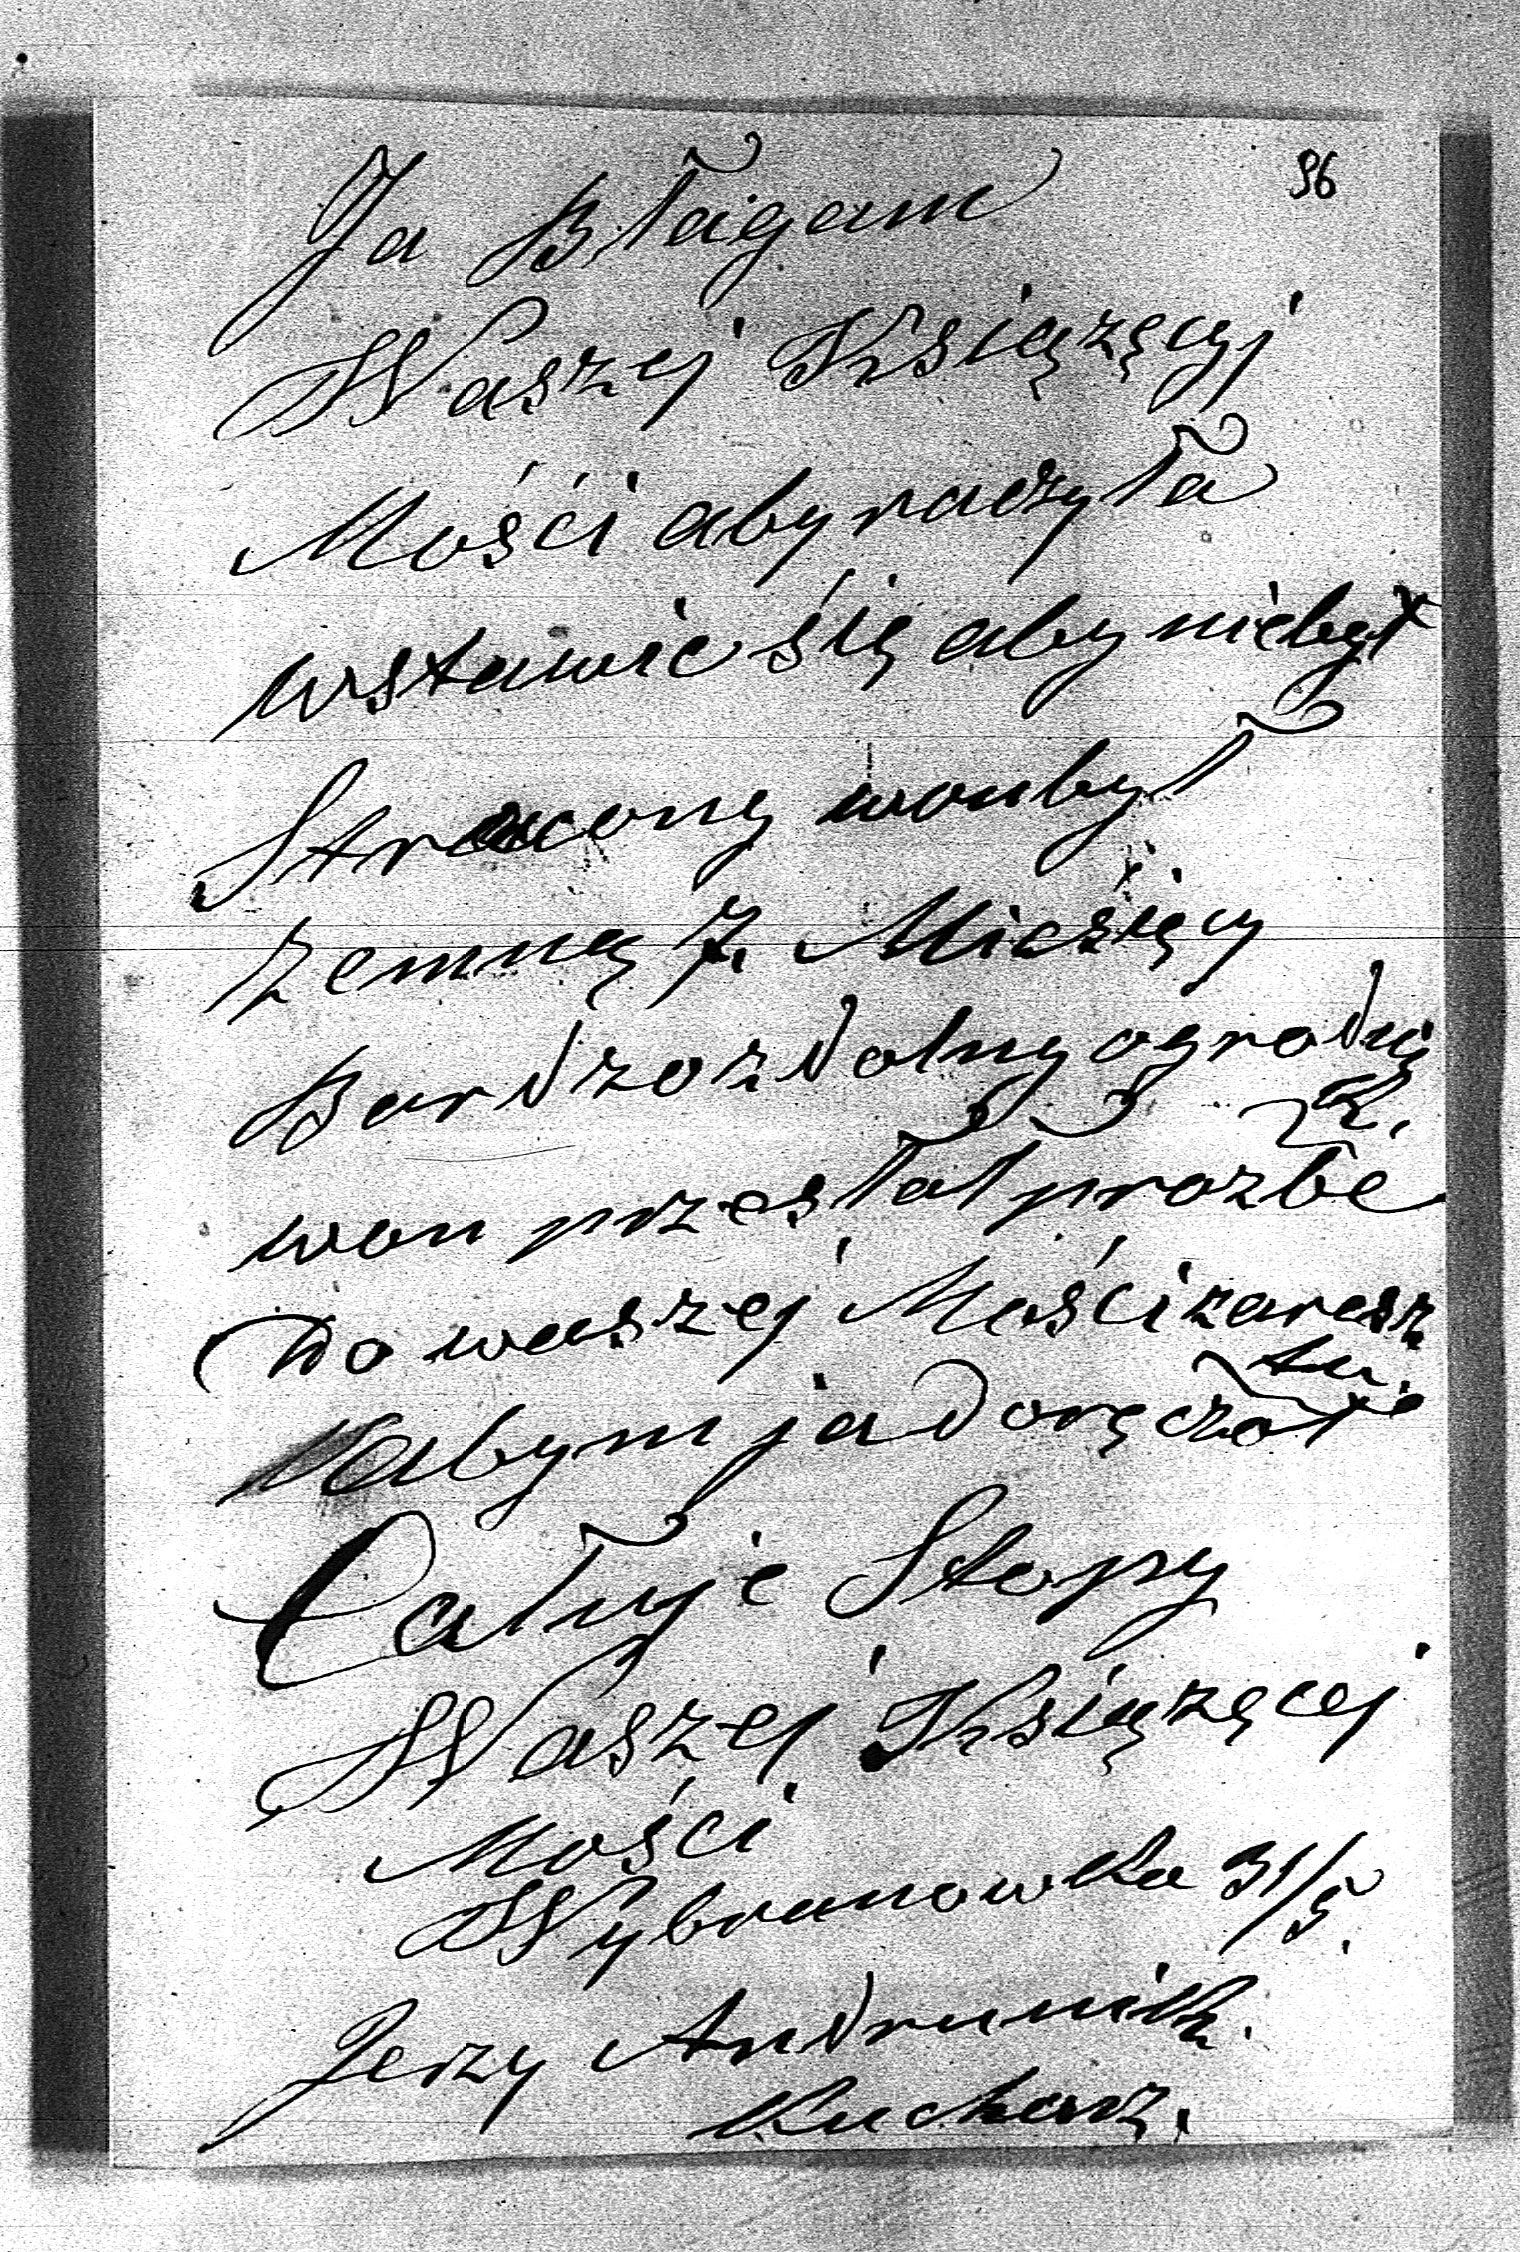 96
Ja Błagam
Waszej Książęcyj
Mości aby raczyła
wstawic się aby niebył
Stracony won był
zemną 7. Miesięcy
Bardzo zdolny ogrodnj
k.
won przesłał prozbe
Do waszej Mości zarasz
tu.
abym ja doręczał
Całuje Stopy
Waszej Książęcej
Mości
Wybranowka 31/5.
Jerzy Andruneik.
Kucharz.